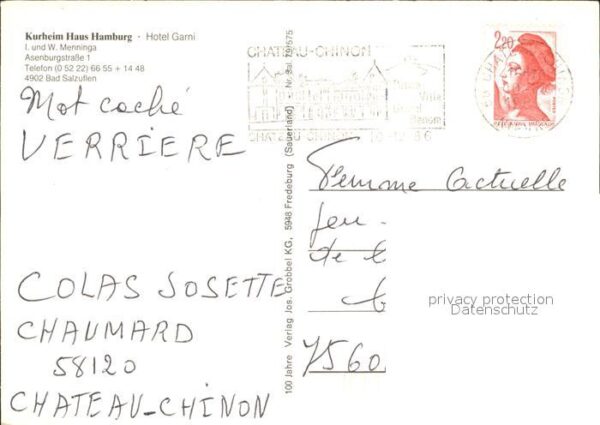 Kurheim Haus Hamburg · Hotel Garni
I. und W. Menninga
Asenburgstraße 1
Telefon (0 52 22) 66 55 + 14 48
4902 Bad Salzuflen
Mot caché
VERRIERE
COLAS JOSETTE
CHAUMARD
58120
CHATEAU-CHINON
100 Jahre Verlag Jos. Grobbel KG, 5948 Fredeburg (Sauerland) – Nr. Sal. 79/575
CHATEAU-CHINON
CHATEAU CHINON
2,20
Femme Actuelle
Jeu
de l
7560
privacy protection
Datenschutz